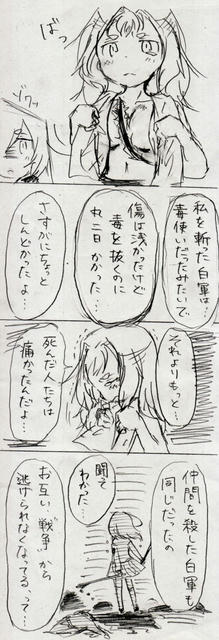 ばっ
ゾワッ
私を斬った白軍は
毒使いだったみたいで
傷は浅かったけど
毒を抜くのに
丸二日かかった…
さすがにちょっと
しんどかったよ…
それよりもっと…
死んだ人たちは
痛かったんだよ…
仲間を殺した白軍も
同じだったの
聞いて
わかった…
お互い〝戦争〟から
逃げられなくなってるって…